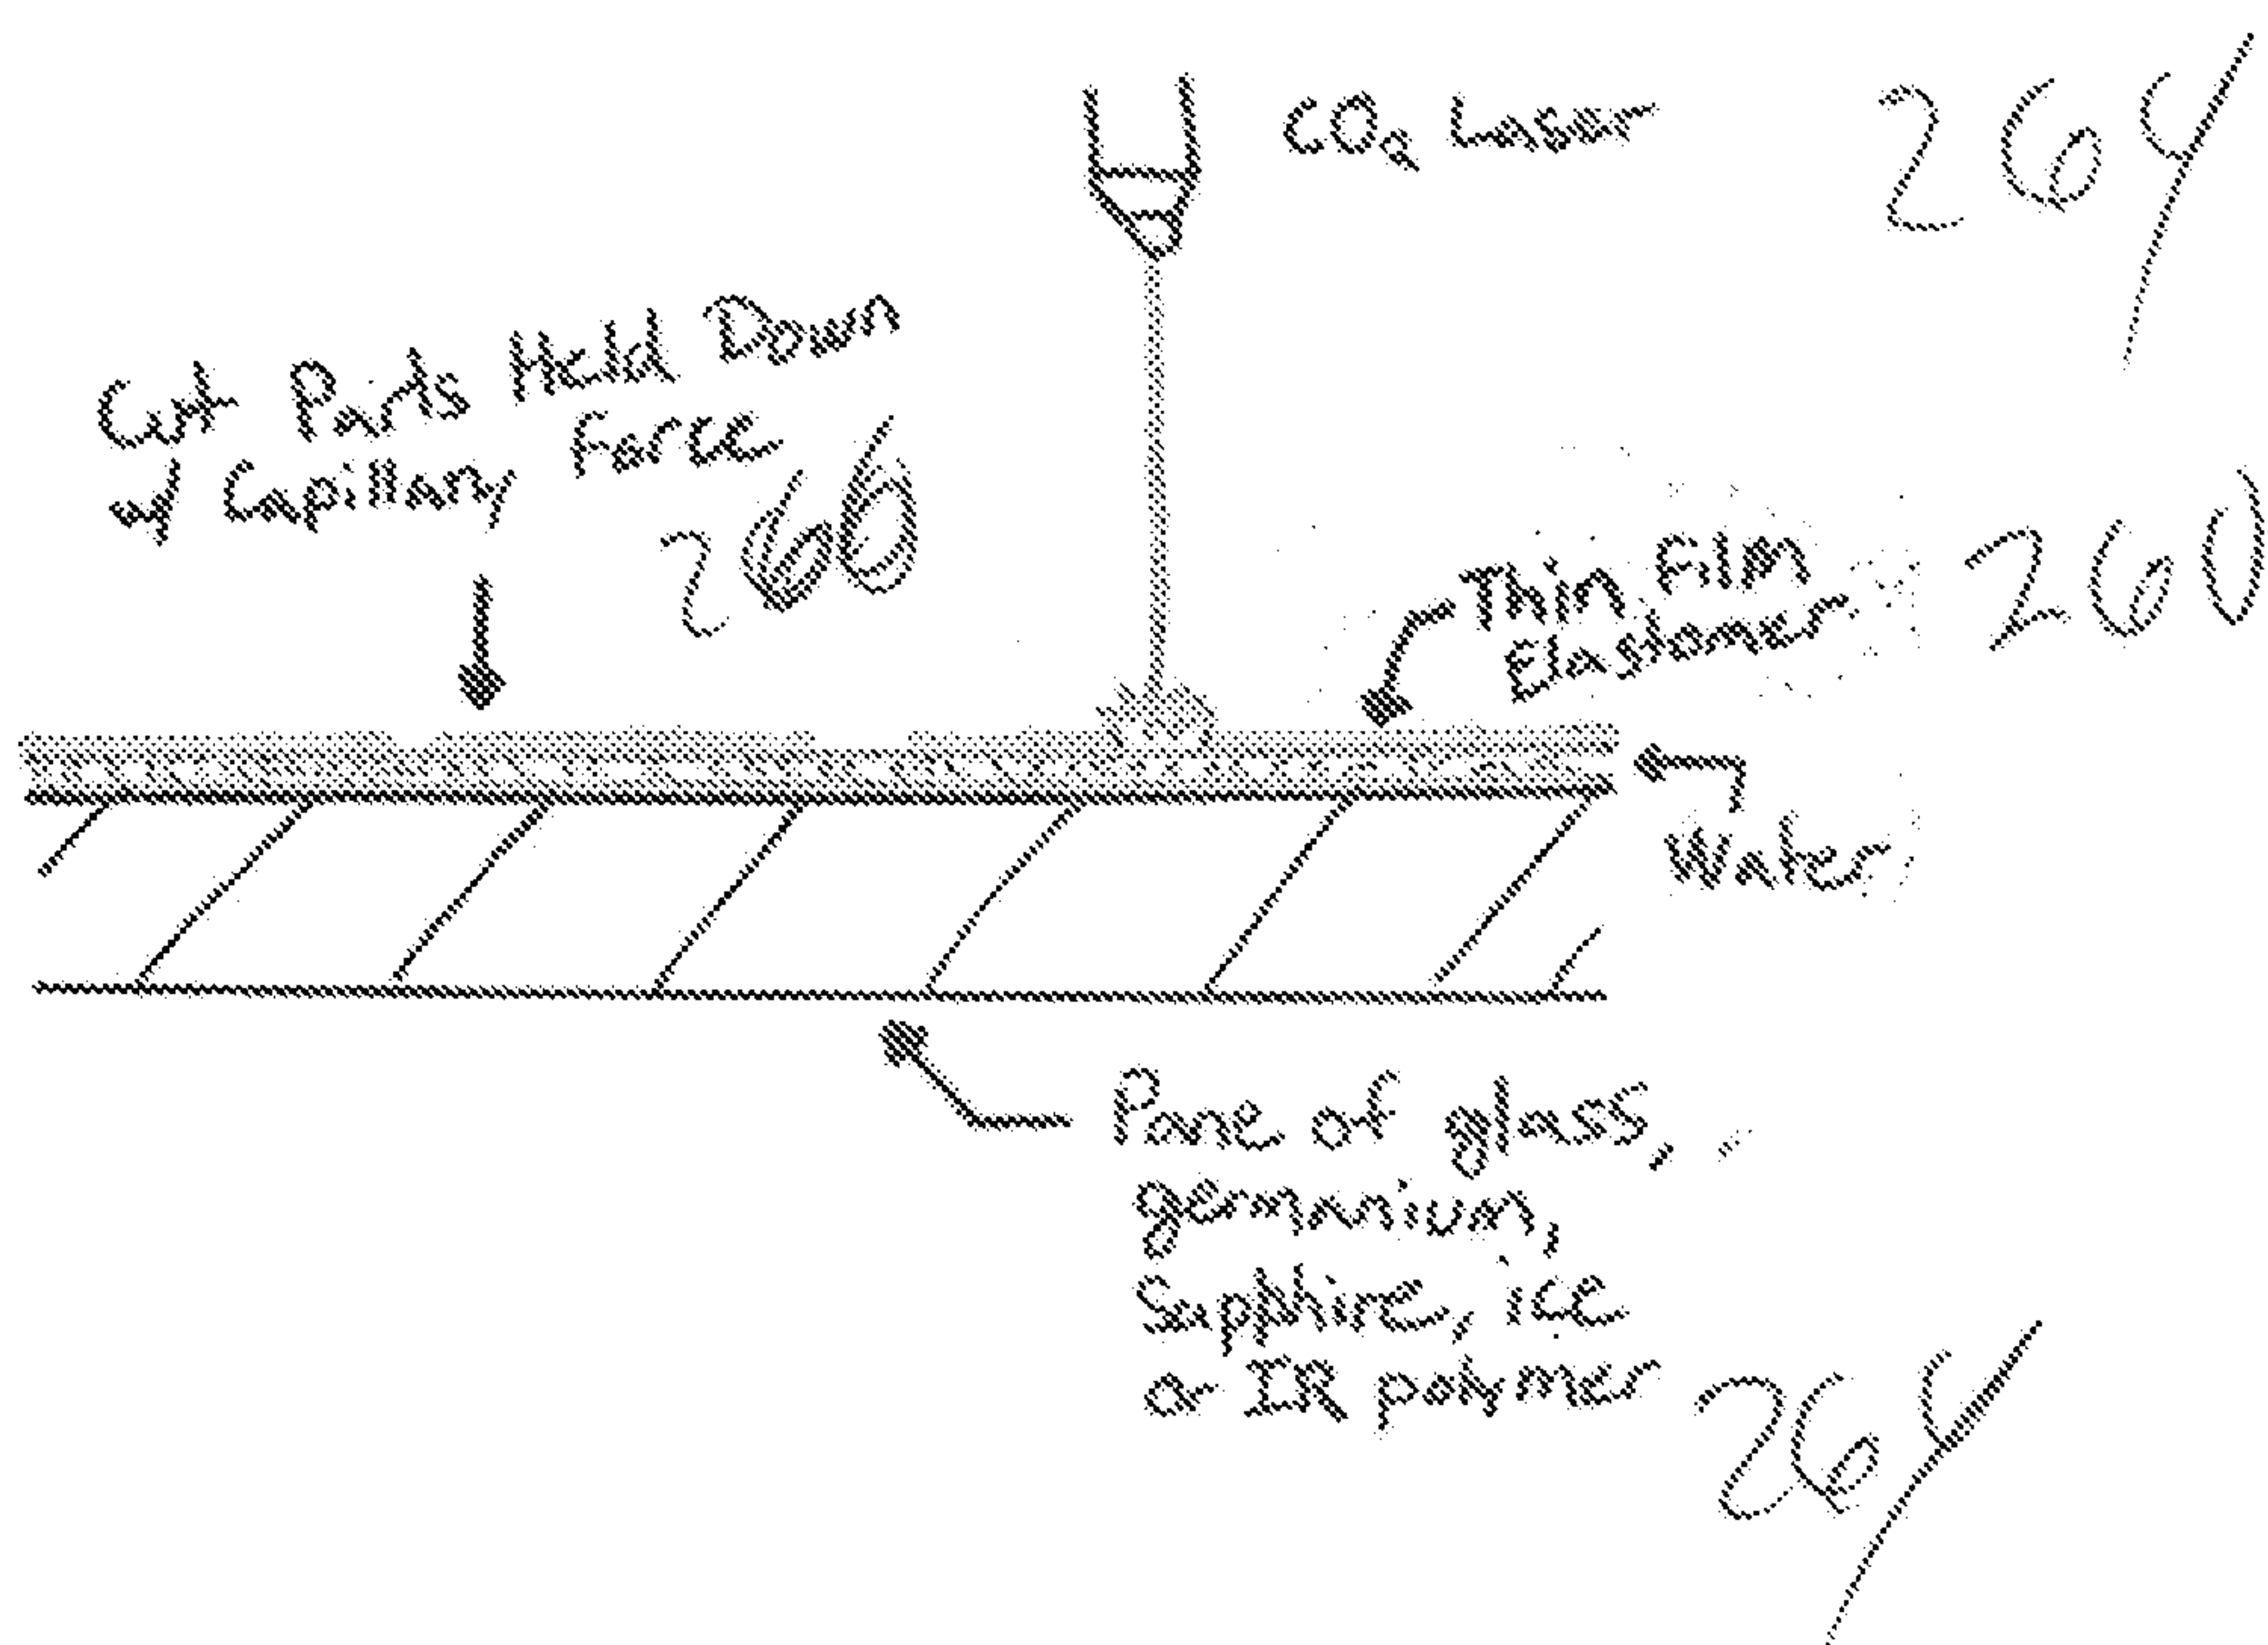 CO2 Laser 264
Cut Parts Held Down
w/ Capillary Force
266
Thin Film
Elastomer
260
Water
Pane of glass,
germanium,
Sapphire, ice
or IR polymer
264